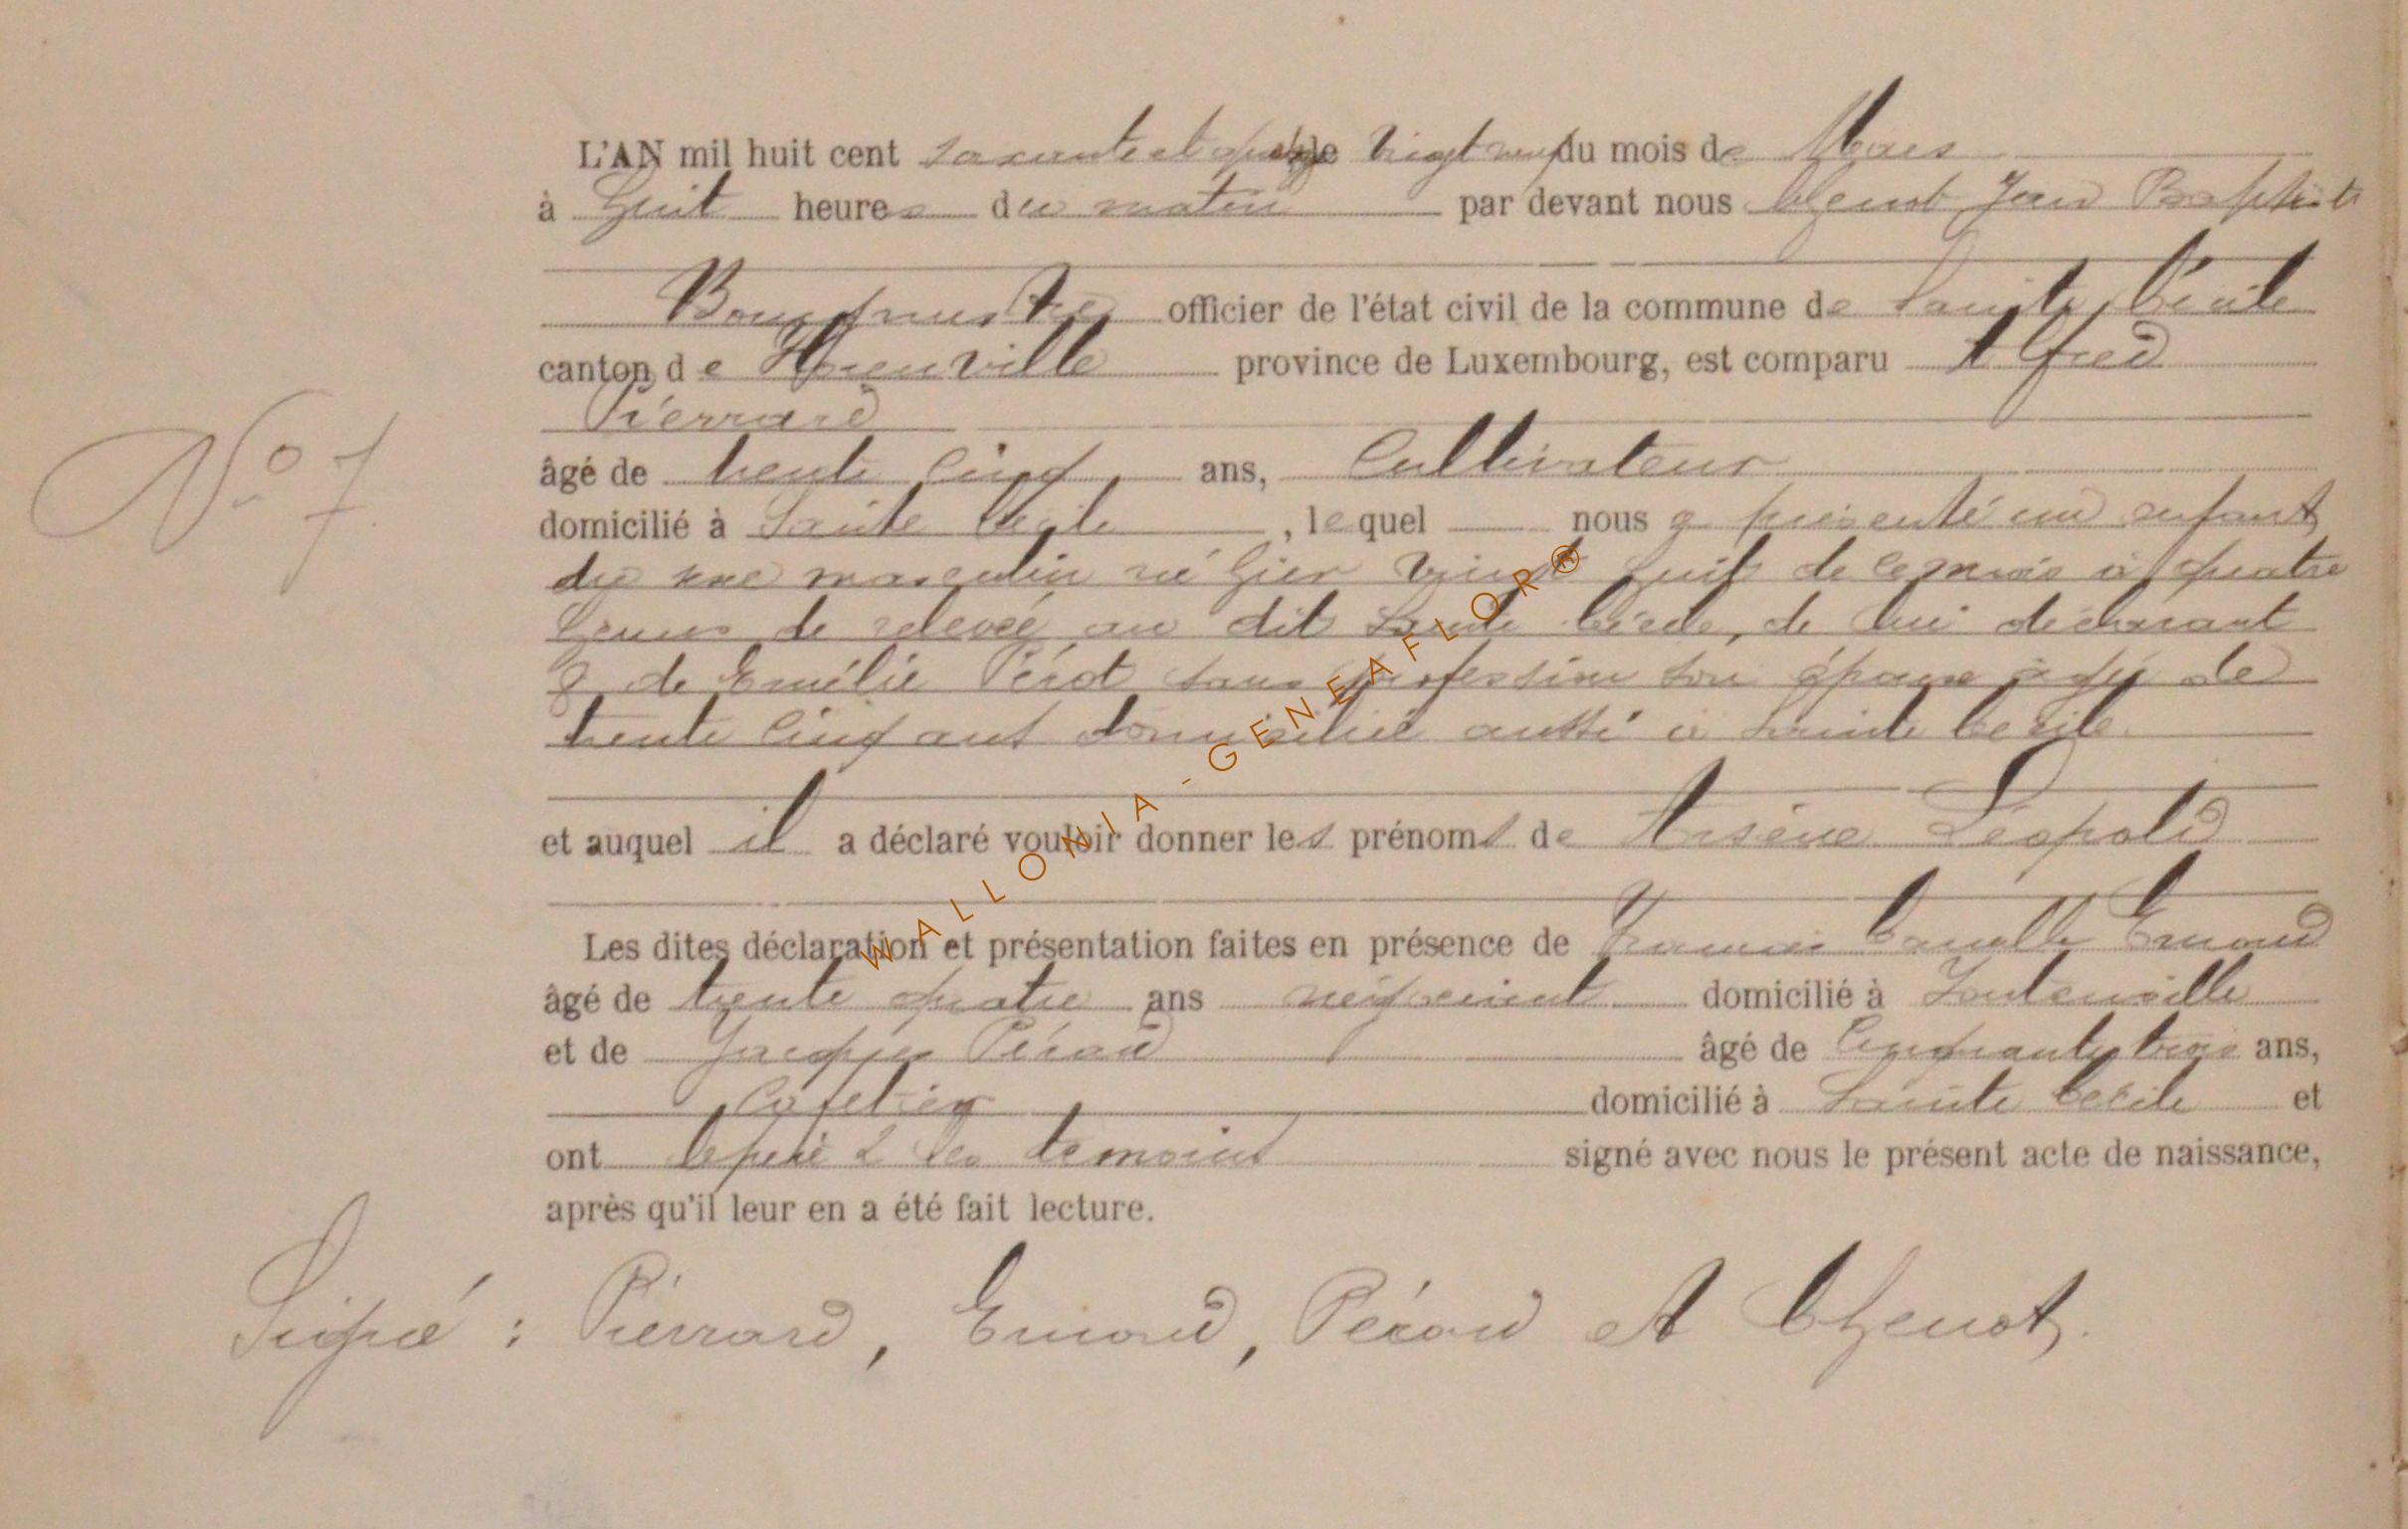 L'AN mil huit cent soixante et quinze le vingt neuf du mois de Mars
à huit heures du matin par devant nous Chenot Jean Baptiste
Bourgmestre officier de l'état civil de la commune de Sainte Cécile
canton de Florenville province de Luxembourg, est comparu Alfred
Piérrard
âgé de trente cinq ans, Cultivateur
domicilié à Sainte Cécile, lequel nous a présenté un enfant
N° 7.
du sexe masculin né hier vingt huit de ce mois à quatre
heures de relevée au dit Sainte Cécile, de lui déclarant
& de Emélie Pérot sans profession son épouse âgée de
trente cinq ans domiciliée aussi à Sainte Cecile.
et auquel il a déclaré vouloir donner les prénoms de Arsène Léopold
Les dites déclaration et présentation faites en présence de François Camille Emond
âgé de trente quatre ans négociant domicilié à Fontenoille
et de Jacques Pérard âgé de Cinquante trois ans,
Cafetier domicilié à Sainte Cecile et
ont le père & les temoins signé avec nous le présent acte de naissance,
après qu'il leur en a été fait lecture.
Signé : Piérrard, Emond, Pérard et Chenot.
WALLONIA - GENEAFLOR®